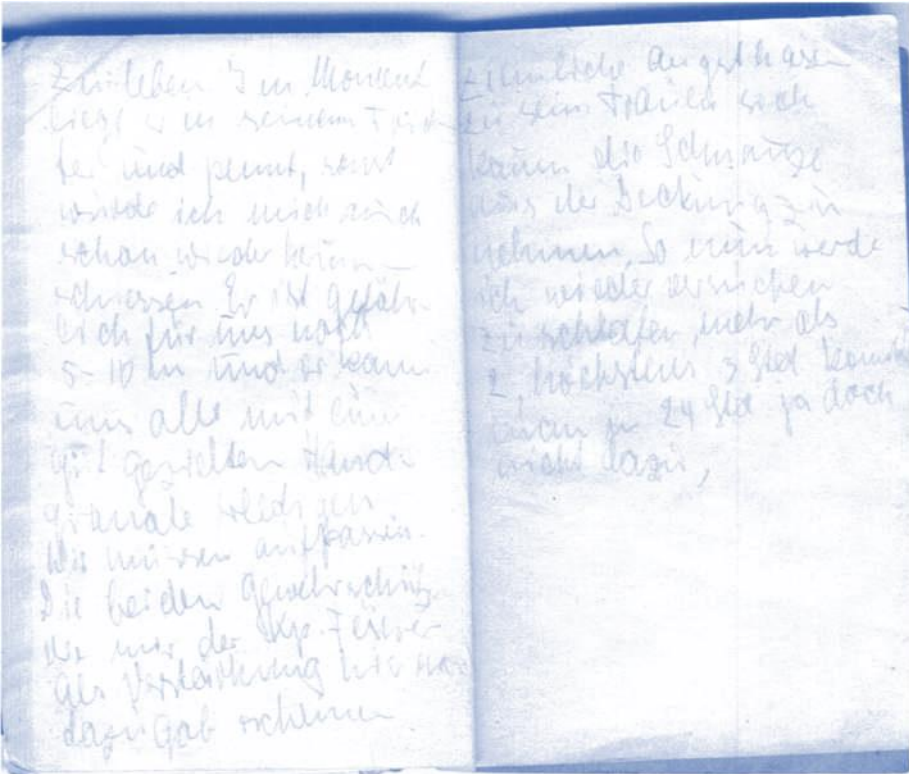 zu erleben. Im Moment
liegt er in seinem
ter und pennt, sonst
würde ich mich auch
schon wieder herum-
schiessen. Er ist gefähr-
lich für uns noch
5-10 m und er kann
uns alle mit einer
gut gezielten Hand-
granate erledigen
Wir müssen aufpassen.
Die beiden Gewehrschütz
die mir der Kp. Führer
als Verstärkung hier
dazu gab scheinen
ziemliche Angsthasen
zu sein trauen sich
kaum die Schnauze
aus der Deckung zu
nehmen, So nun werde
ich wieder versuchen
zu schlafen, mehr als
2, höchstens 3 Std kommt
man in 24 Std ja doch
nicht dazu,